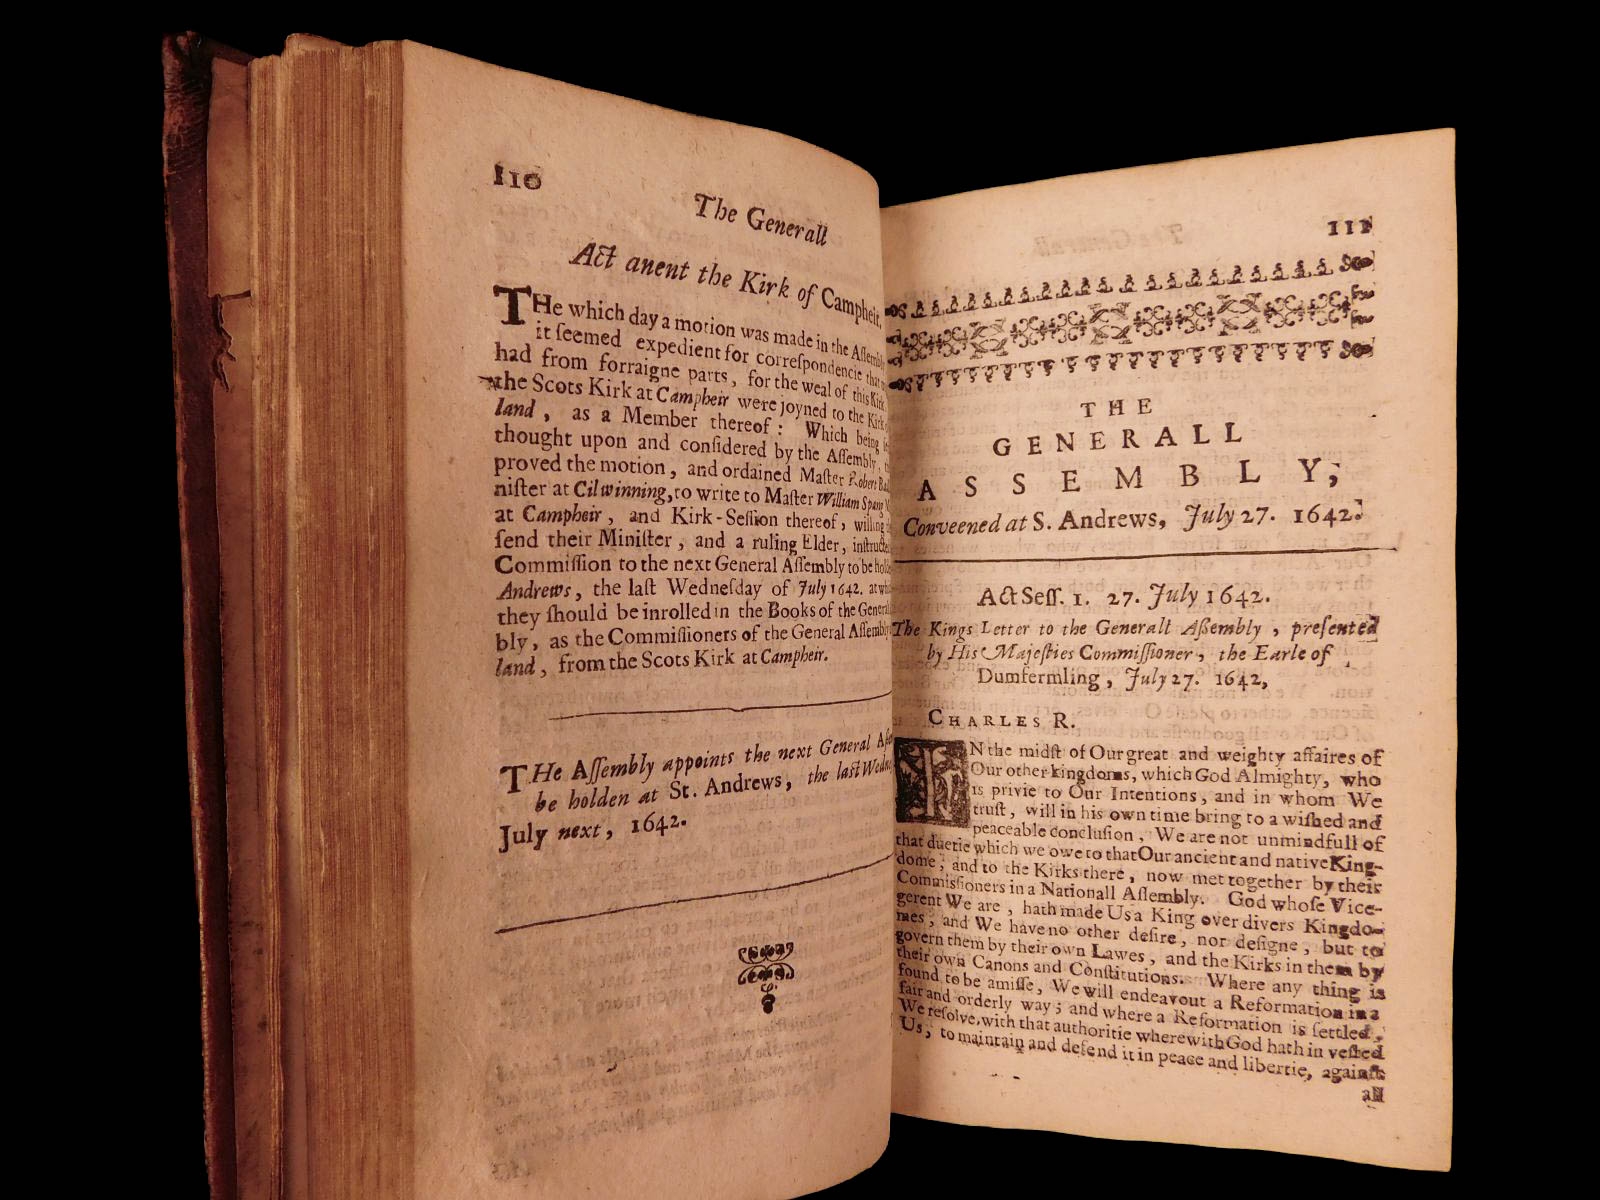 110
The Generall
Act anent the Kirk of Campheir.
THe which day a motion was made in the Assembly
it ſeemed expedient for correſpondencie that
had from forraigne parts, for the weal of this Kirk
the Scots Kirk at Campheir were joyned to the Kirk
land, as a Member thereof: Which being
thought upon and conſidered by the Aſſembly,
proved the motion, and ordained Maſter Robert
niſter at Cilwinning, to write to Maſter William Spang
at Campheir, and Kirk-Seſſion thereof, willing
ſend their Miniſter, and a ruling Elder, inſtructed
Commiſſion to the next General Aſſembly to be
Andrews, the laſt Wedneſday of July 1642. at
they ſhould be inrolled in the Books of the General
bly, as the Commiſſioners of the General Aſſembly
land, from the Scots Kirk at Campheir.
THe Aſſembly appoints the next General
be holden at St. Andrews, the laſt
July next, 1642.
111
THE
GENERALL
ASSEMBLY,
Conveened at S. Andrews, July 27. 1642.
Act Seſſ. 1. 27. July 1642.
The Kings Letter to the Generall Aßembly, preſented
by His Majeſties Commiſſioner, the Earle of
Dumfermling, July 27. 1642,
CHARLES R.
IN the midſt of Our great and weighty affaires of
Our other kingdoms, which God Almighty, who
is privie to Our Intentions, and in whom We
truſt, will in his own time bring to a wiſhed and
peaceable concluſion, We are not unmindfull of
that duetie which we owe to that Our ancient and native King-
dome, and to the Kirks there, now met together by their
Commiſſioners in a Nationall Aſſembly. God whoſe Vice-
gerent We are, hath made Us a King over divers Kingdo-
mes, and We have no other deſire, nor deſigne, but to
govern them by their own Lawes, and the Kirks in them by
their own Canons and Conſtitutions. Where any thing is
found to be amiſſe, We will endeavout a Reformation in a
fair and orderly way; and where a Reformation is ſettled,
We reſolve, with that authoritie wherewith God hath in veſted
Us, to maintain and defend it in peace and libertie, againſt
all